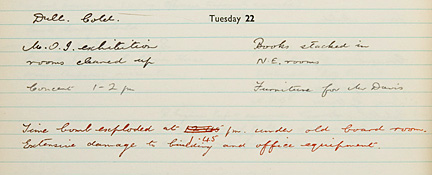 Dull. Cold.
Tuesday 22
M.O.I. exhibition
rooms cleared up
Books stacked in
N.E. rooms
Concert 1-2 pm
Furniture for Mr Davis
Time bomb exploded at 1.45 pm. under old board room.
Extensive damage to building and office equipment.